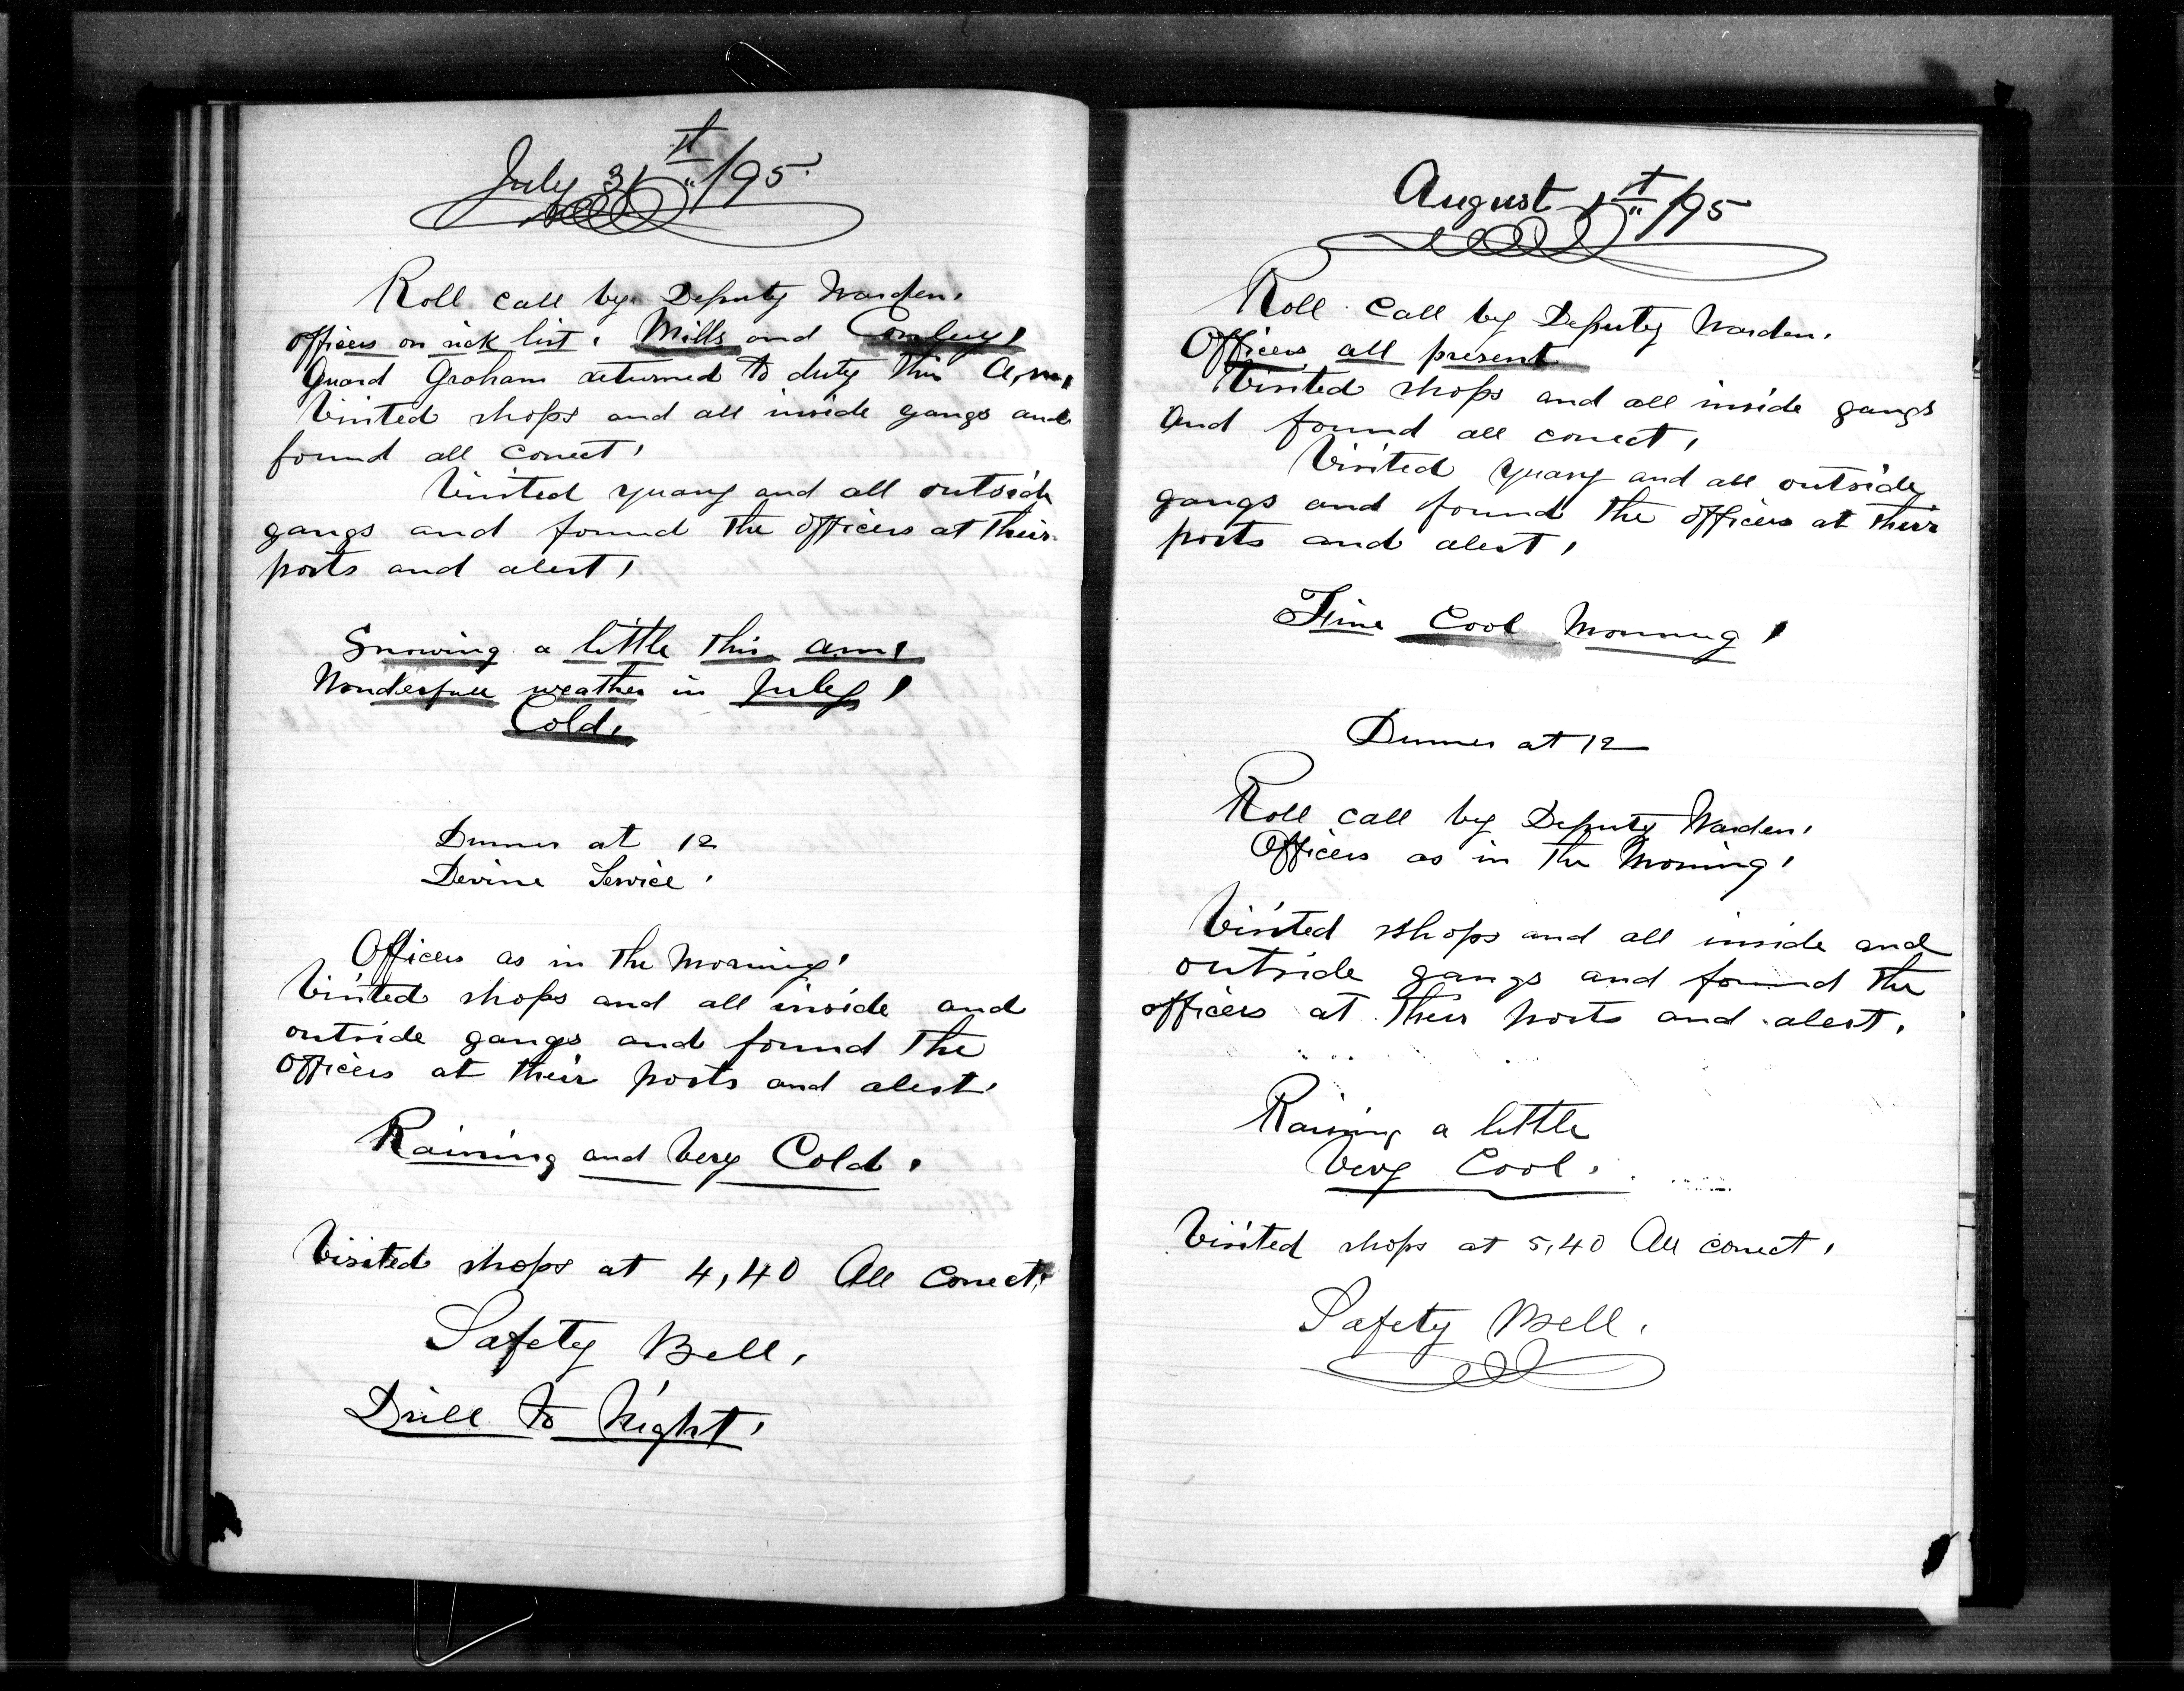 July 31st /95
Roll call by Deputy Warden.
officers on sick list. Mills and Conley.
Guard Graham returned to duty this A.m.
Visited shops and all inside gangs and
found all correct.
Visited quary and all outside
gangs and found the officers at their
posts and alert.
Snowing a little this am.
Wonderfull weather in July.
Cold.
Dinner at 12
Devine Service.
Officers as in the morning.
Visited shops and all inside and
outside gangs and found the
officers at their posts and alert.
Raining and Very Cold.
Visited shops at 4,40 All Correct.
Safety Bell.
Drill to Night.
August 1st /95
Roll call by Deputy Warden.
Officers all present
Visited shops and all inside gangs
And found all correct.
Visited quary and all outside
gangs and found the officers at their
posts and alert.
Fine Cool Morning.
Dinner at 12
Roll call by Deputy Warden.
Officers as in the Morning.
Visited shops and all inside and
outside gangs and found the
officers at their posts and alert.
Raining a little
Very Cool.
Visited shops at 5,40 All correct.
Safety Bell.